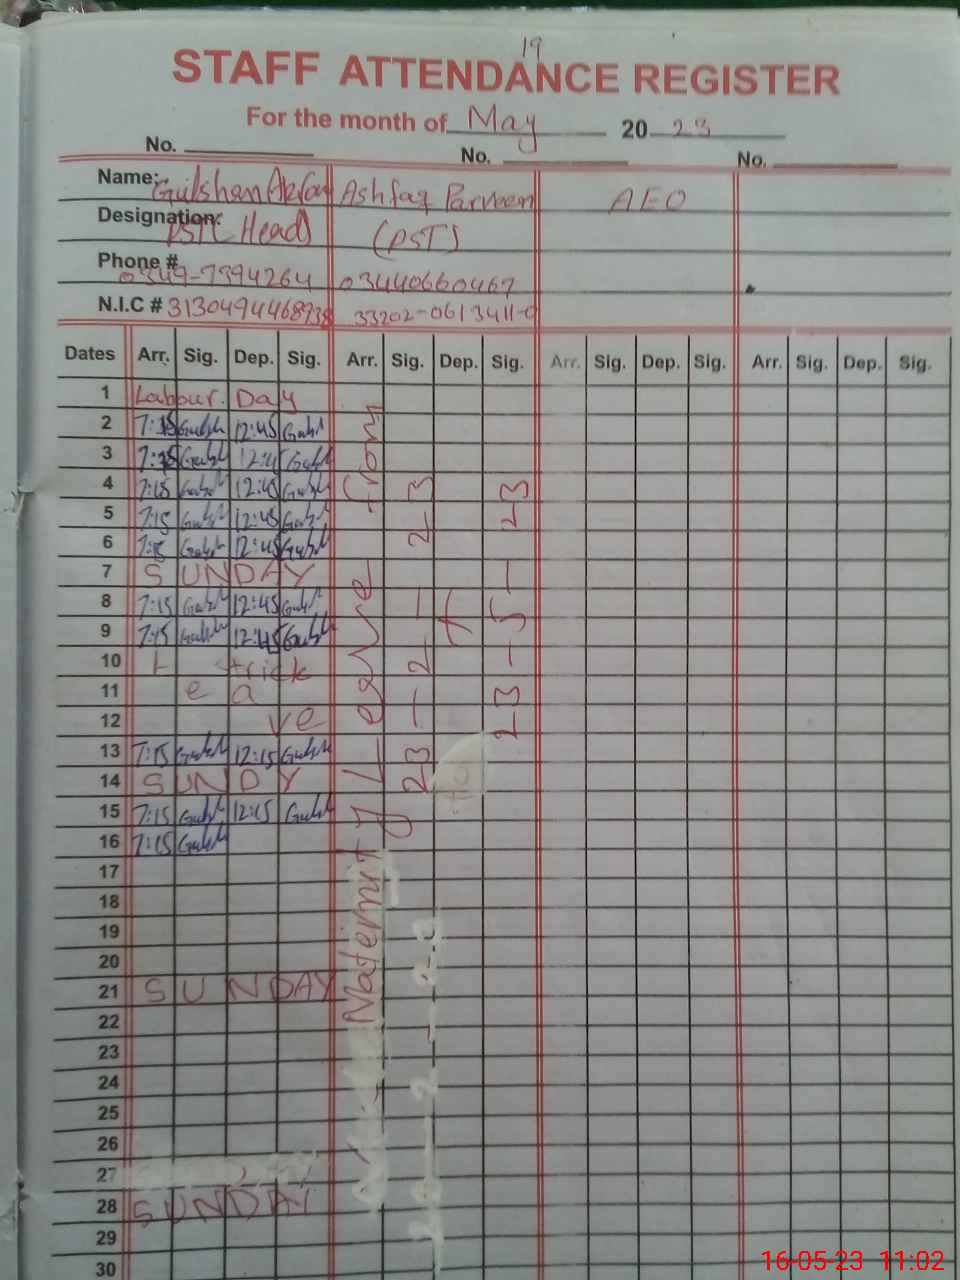 19
STAFF ATTENDANCE REGISTER
For the month of May 20 23
No. No. No.
Name: Gulshan Ashfaq Parveen AEO
Designation: PST (Head) (PST)
Phone # 0349-7394264 03440660467
N.I.C # 33202-0613411-0
Dates Arr. Sig. Dep. Sig. Arr. Sig. Dep. Sig. Arr. Sig. Dep. Sig. Arr. Sig. Dep. Sig.
1 Labour Day
2 7:15 Gulsh 12:45 Gulsh
3 7:15 Gulsh 12:45 Gulsh
4 7:15 Gulsh 12:45 Gulsh
5 7:15 Gulsh 12:45 Gulsh
6 7:15 Gulsh 12:45 Gulsh
7 SUNDAY
8 7:15 Gulsh 12:45 Gulsh
9 7:15 Gulsh 12:45 Gulsh
10 L
11 e a
12 ve
13 7:15 Gulsh 12:15 Gulsh
14 SUNDY
15 7:15 Gulsh 12:15 Gulsh
16 7:15 Gulsh
17
18
19
20
21 SUNDAY
22
23
24
25
26
27
28 SUNDAY
29
30
Maternity Leave from
23-2-23
to
23-5-23
16-05-23 11:02